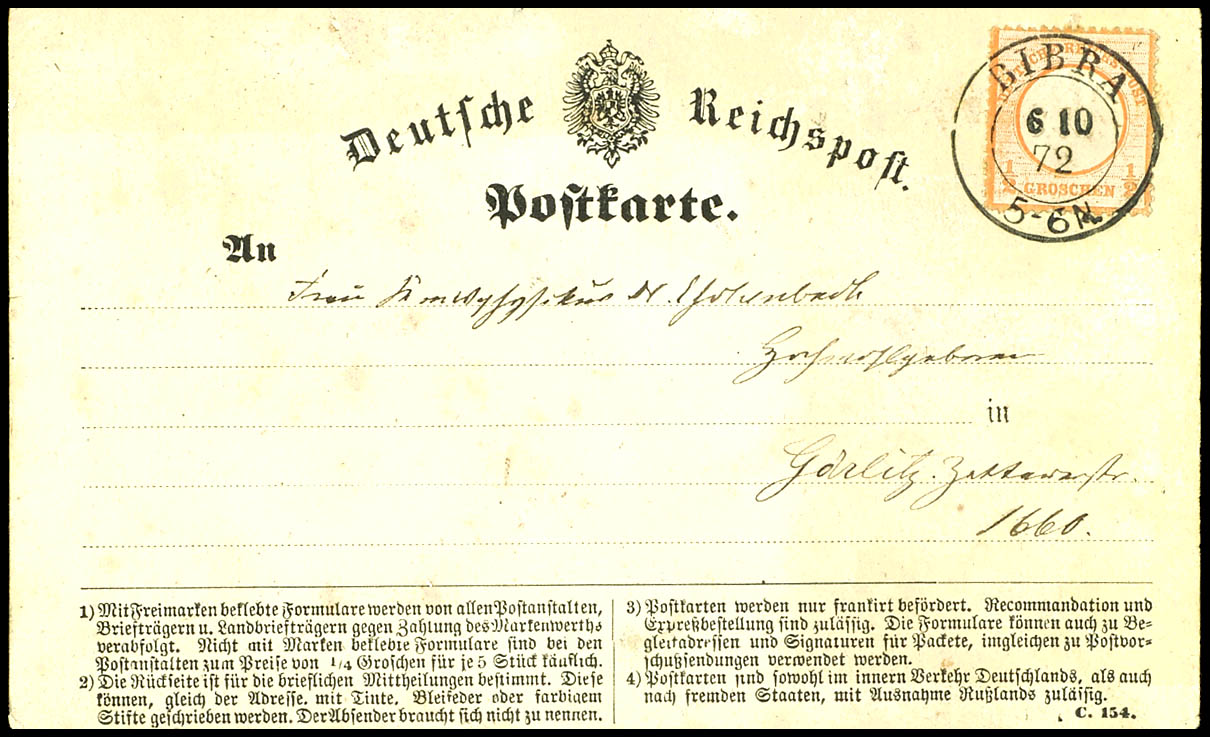 Deutsche Reichspost.
Postkarte.
BIBRA
6 10
72
5-6N
1/2 GROSCHEN 1/2
An
Frau Dr.
Hochwohlgeboren
in
Görlitz.
1660.
1) Mit Freimarken beklebte Formulare werden von allen Postanstalten,
Briefträgern u. Landbriefträgern gegen Zahlung des Markenwerths
verabfolgt. Nicht mit Marken beklebte Formulare sind bei den
Postanstalten zum Preise von 1/4 Groschen für je 5 Stück käuflich.
2) Die Rückseite ist für die brieflichen Mittheilungen bestimmt. Diese
können, gleich der Adresse, mit Tinte, Bleifeder oder farbigem
Stifte geschrieben werden. Der Absender braucht sich nicht zu nennen.
3) Postkarten werden nur frankirt befördert. Recommandation und
Expreßbestellung sind zulässig. Die Formulare können auch zu Be-
gleitadressen und Signaturen für Packete, imgleichen zu Postvor-
schußsendungen verwendet werden.
4) Postkarten sind sowohl im innern Verkehr Deutschlands, als auch
nach fremden Staaten, mit Ausnahme Rußlands zulässig.
C. 154.